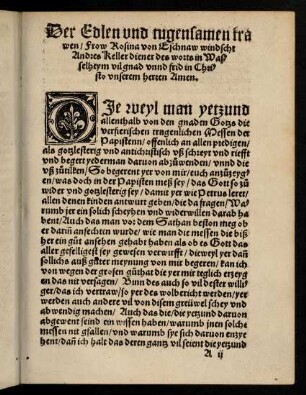 Der Edlen vnd tugensamen fra
wen / Frow Rosina von Eschnaw windscht
Andres Keller diener des worts in Was
selheym vil gnad vnnd frid in Chri
sto vnserem herren Amen.
Die weyl man yetzund
allenthalb von den gnaden Gotts die
verfierischen trugenlichen Messen der
Papisten / offenlich an allen predigen /
als gotzlesterig und antichristisch vß schreyt vnd riefft
vnd begert yederman daruon abzůwenden / vnnd die
vß zůtilken / So begerent yr von mir / euch anzůzeyg
en / was doch in der Papisten meß sey / das Gott so zů
wider vnd gotzlesterig sey / damit yr wie Petrus leret /
allen denen kinden antwurt geben / die da fragen / Wa
rumb jer ein solich scheyhen vnd widerwillen darab ha
bent / Auch das man vor dem Sathan beston meg ob
er darin ansechten wurde / wie man die messen die biß
her ein gůt ansehen gehabt haben als ob es Gott das
aller gefelligest sey gewesen verwurfft / dieweyl yr dan
sollichs auß gůter meynung von mir begeren / kan ich
von wegen der grosen gůthat die yr mir teglich erzeyg
en das nit versagen / Bunn des auch so vil dester willi
ger / das ich vertraw / so yer des wol bericht werden / yer
werden auch andere vil von disem greüwel schey vnd
abwendig machen / Auch das die / die yetzund daruon
abgewent seind ein wissen haben / warumb jnen solche
messen nit gfallen / vnd warumb sye sich daruon enzye
hent / dañ ich halt das deren gantz vil seient die yetzund
A ij